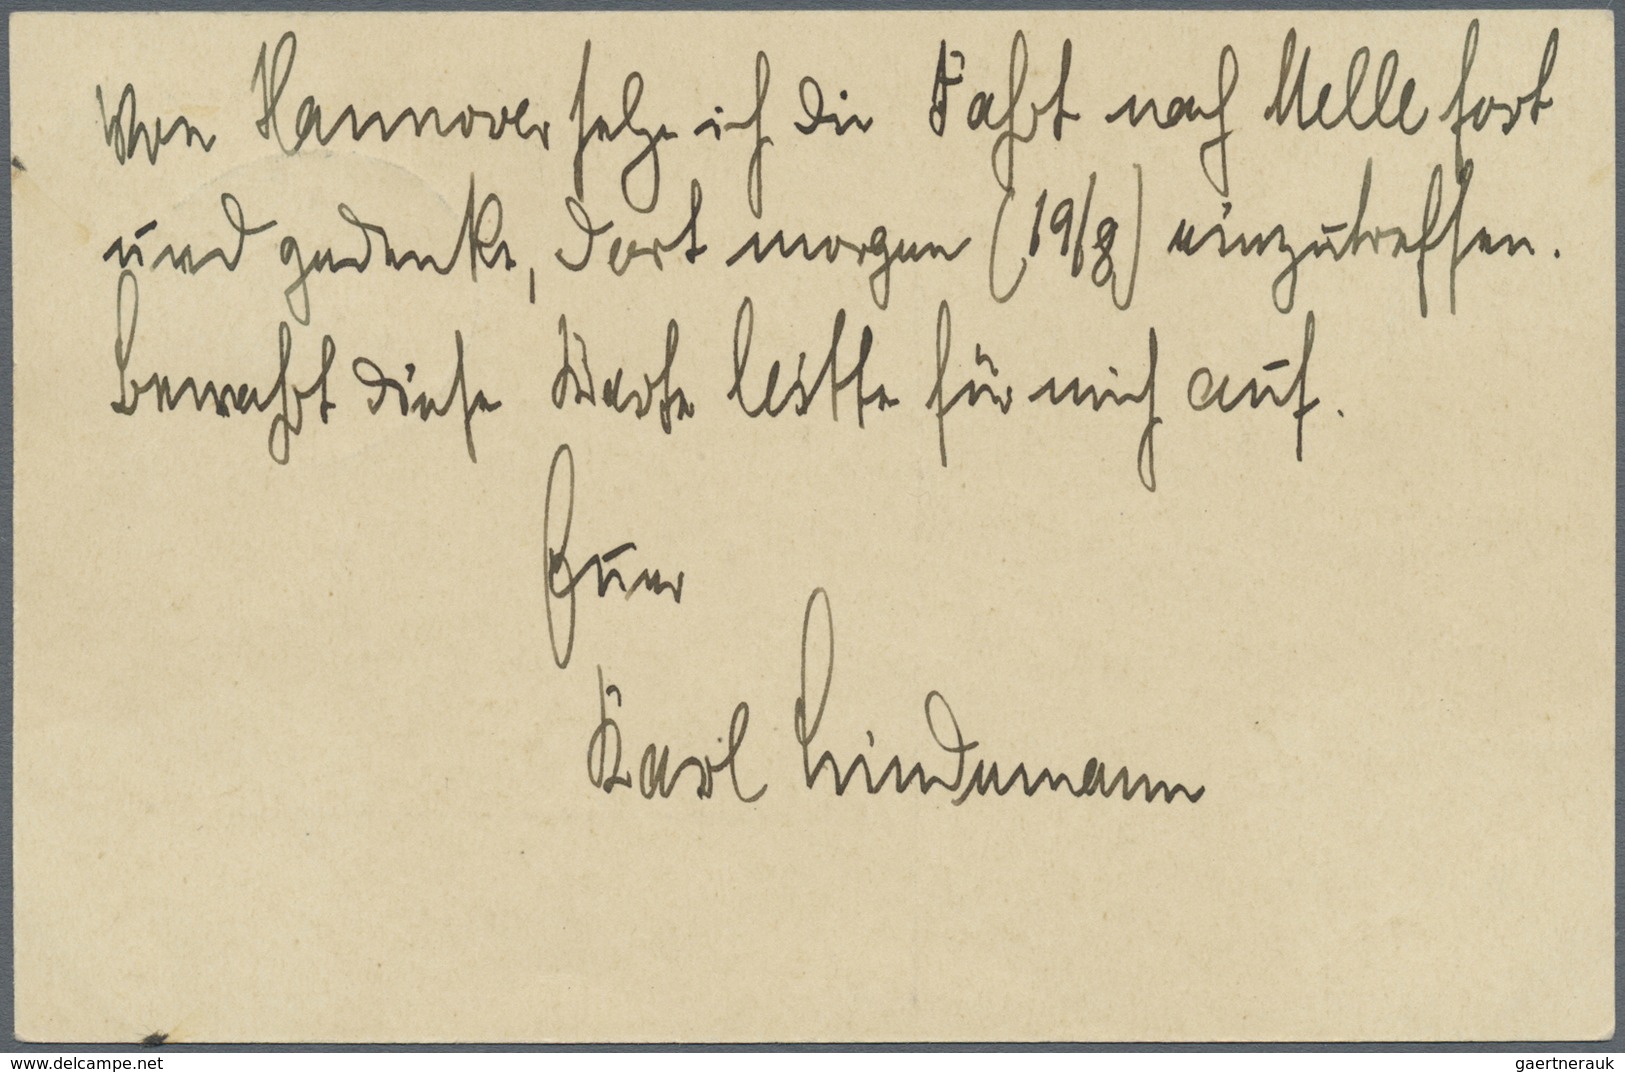 Von Hannover setze ich die Fahrt nach Melle fort
und gedenke, dort morgen (19/8) einzutreffen.
Bewahrt diese Karte bitte für mich auf.
Euer
Karl Lindemann
www.delcampe.net
gaertnerauk